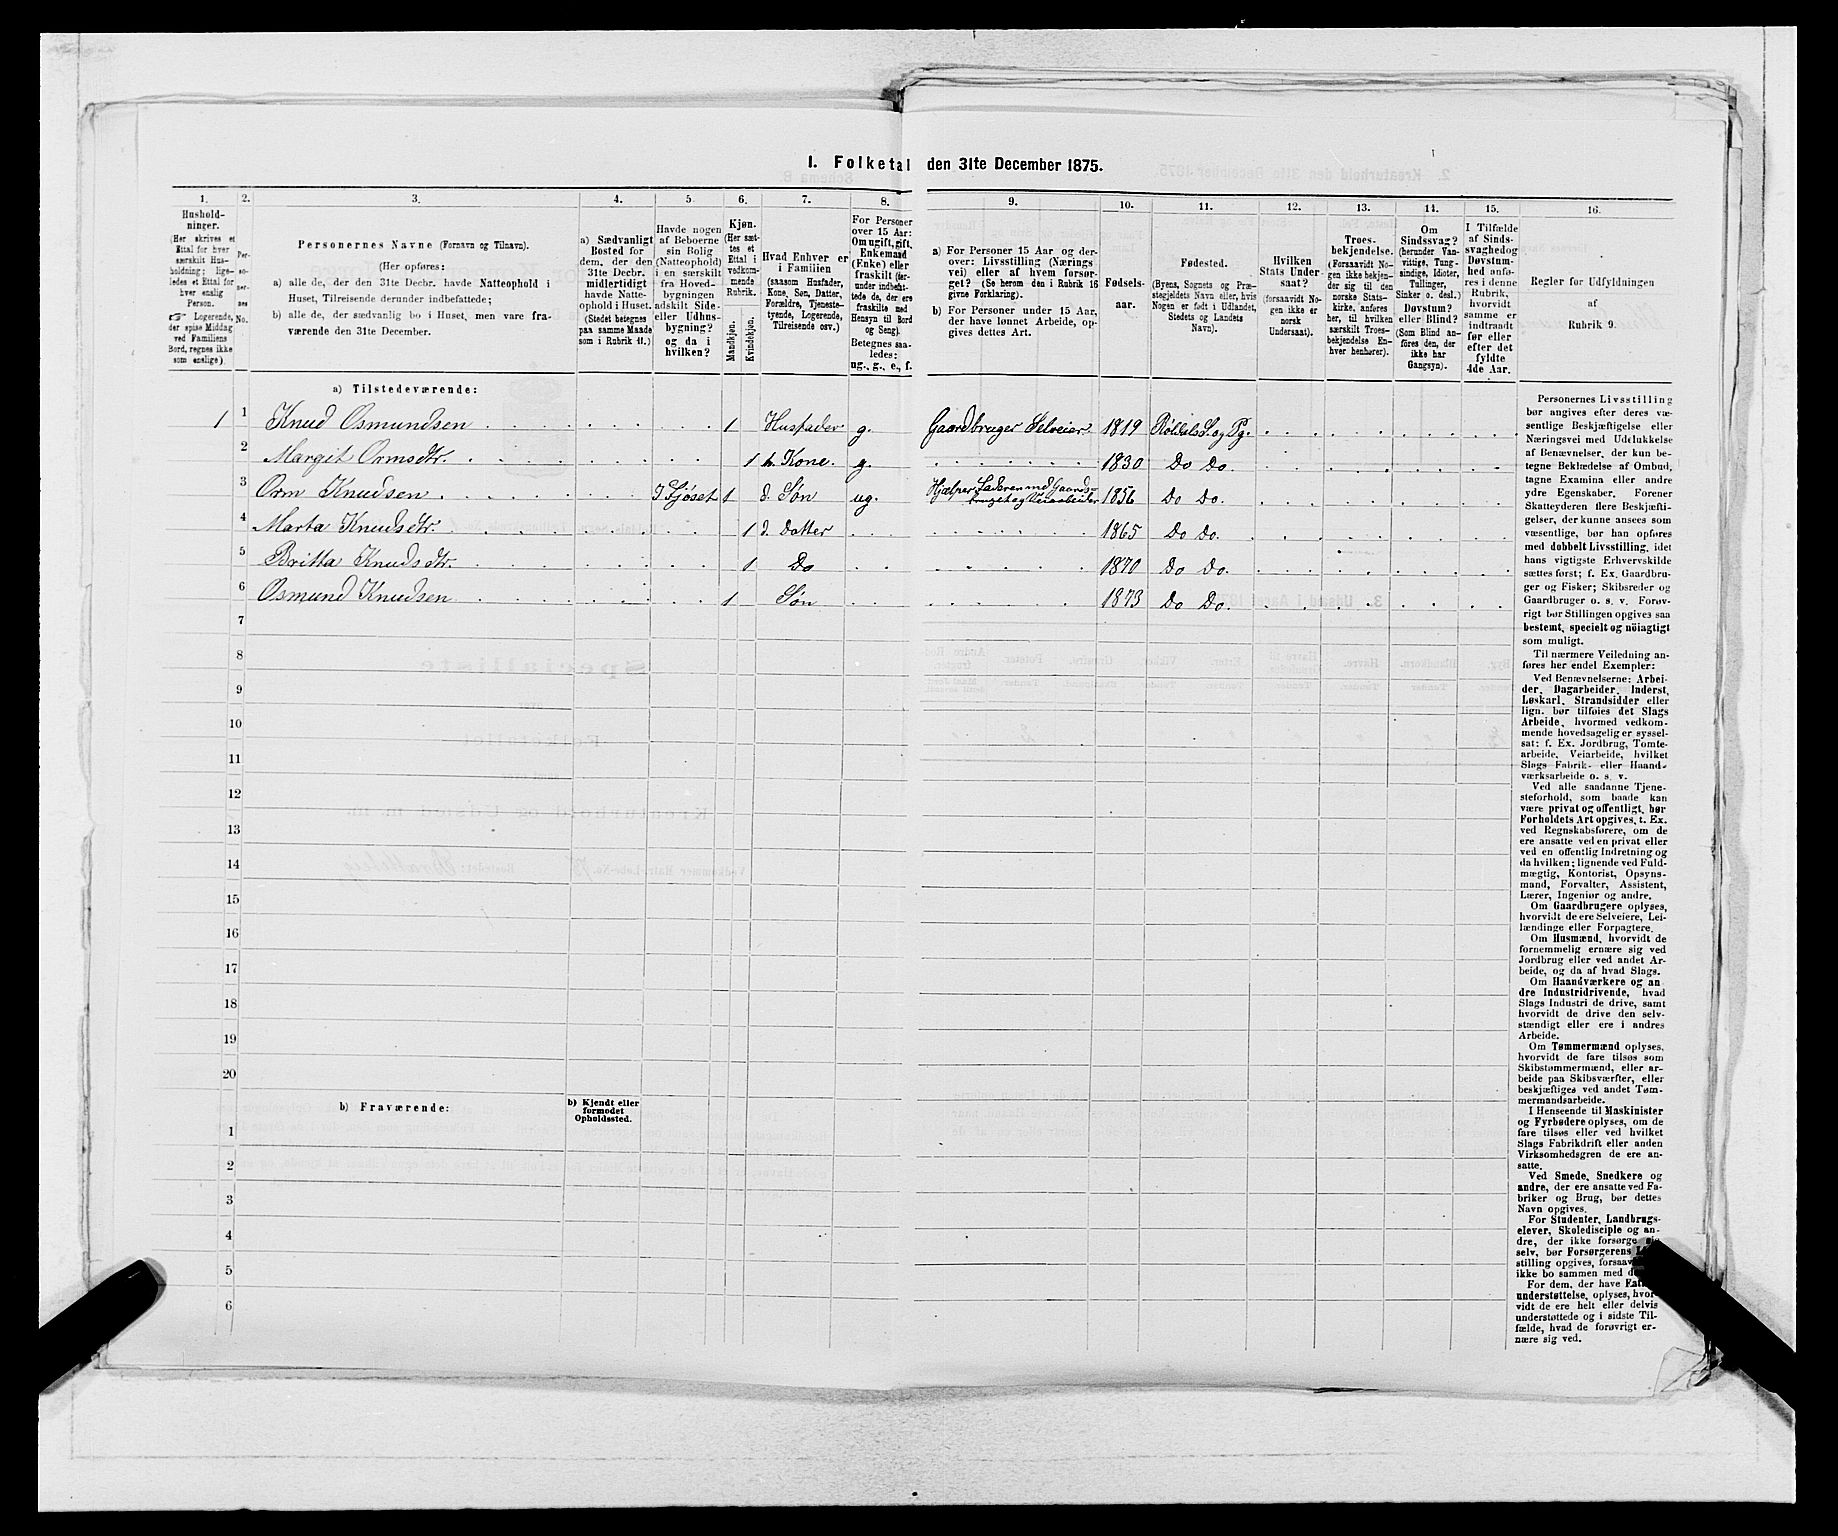 1. Folketal den 31te December 1875.
1. 2. 3. 4. 5. 6. 7. 8. 9. 10. 11. 12. 13. 14. 15. 16.
Hushold-
ninger.
(Her skrives et
Ettal for hver
særskilt Hus-
holdning; lige-
ledes et Ettal for
hver enslig
Person.
☞ Logerende,
der spise Middag
ved Familiens
Bord, regnes ikke
som enslige).
Per-
so-
ner-
nes
No.
Personernes Navne (Fornavn og Tilnavn).
(Her opføres:
a) alle de, der den 31te Decbr. havde Natteophold i
Huset, Tilreisende derunder indbefattede;
b) alle de, der sædvanlig bo i Huset, men vare fra-
værende den 31te December.
a) Sædvanligt
Bosted for
dem, der den
31te Decbr.
midlertidigt
havde Natte-
ophold i Huset.
(Stedet betegnes
paa samme Maade
som i Rubrik 11.)
Havde nogen
af Beboerne
sin Bolig
(Natteophold)
i en særskilt
fra Hoved-
bygningen
adskilt Side-
eller Udhus-
bygning?
og da i
hvilken?
Kjøn.
(Her sæt-
tes et
Ettal i
vedkom-
mende
Rubrik.
Mandkjøn.
Kvindekjøn.
Hvad Enhver er
i Familien
(saasom Husfader,
Kone, Søn, Datter,
Forældre, Tjeneste-
tyende, Logerende,
Tilreisende osv.)
For Personer
over 15 Aar:
Om ugift, gift,
Enkemand
(Enke) eller
fraskilt (der-
under indbefat-
tede de, der ere
fraskilte med
Hensyn til Bord
og Seng).
Betegnes saa-
ledes:
ug., g., e., f.
a) For Personer 15 Aar og der-
over: Livsstilling (Nærings
vei) eller af hvem forsør-
get? (Se herom den i Rubrik 16
givne Forklaring).
b) For Personer under 15 Aar,
der have lønnet Arbeide, op-
gives dettes Art.
Fødsels-
aar.
Fødested.
(Byens, Sognets og Præ-
stegjeldets Navn eller, hvis
Nogen er født i Udlandet,
Stedets og Landets
Navn).
Hvilken
Stats Under-
saat?
(forsaavidt No-
gen ikke er
norsk
Undersaat).
Troes-
bekjendelse.
(Forsaavidt No-
gen ikke bekjen-
der sig til den
norske Stats-
kirke, anføres
her, til hvilken
særskilt Troes-
bekjendelse En-
hver henhører).
Om
Sindssvag?
(herunder Van-
vittige, Tung-
sindige, Idioter,
Tullinger,
Sinker o. desl.)
Døvstum?
eller Blind?
(Som Blind an-
føres den, der
ikke har
Gangsyn).
I Tilfælde
af Sinds-
svaghed og
Døvstum-
hed anfø-
res i denne
Rubrik,
hvorvidt
samme er
indtraadt
før eller
efter det
fyldte
4de Aar.
Regler for Udfyldningen
af
Rubrik 9.
a) Tilstedeværende:
1 1 Knud Osmundsen 1 Husfader g. Gaardbruger Selveier 1819 Röldals S. og Pg.
2 Margit Ormsdtr. 1 h. Kone. g. 1830 Do Do.
3 Orm Knudsen I Fjöset 1 d. Søn ug. Hjælper Faderen med Gaards-
bruget og Veiarbeider 1856 Do Do.
4 Marta Knudsdtr. 1 d. Datter 1865 Do Do.
5 Britta Knudsdtr. 1 Do 1870 Do Do.
6 Osmund Knudsen 1 Søn 1873 Do Do.
7
8
9
10
11
12
13
14
15
16
17
18
19
20
b) Fraværende:
b) Kjendt eller
formodet
Opholdssted.
1
2
3
4
5
6
Personernes Livsstilling
bør angives efter deres væ-
sentlige Beskjæftigelse eller
Næringsvei med Udelukkelse
af Benævnelser, der kun be-
tegne Beklædelse af Ombud,
tagne Examina eller andre
ydre Egenskaber. Forener
Skatteyderen flere Beskjæfti-
gelser, der kunne ansees som
væsentlige, bør han opføres
med dobbelt Livsstilling, idet
hans vigtigste Erhvervskilde
sættes først; f. Ex. Gaardbru-
ger og Fisker; Skibsreder og
Gaardbruger o. s. v. Forøv-
rigt bør Stillingen opgives saa
bestemt, specielt og nöiagtigt
som muligt.
Til nærmere Veiledning an-
føres her endel Exempler:
Ved Benævnelserne: Arbei-
der, Dagarbeider, Inderst,
Løskarl, Strandsidder eller
lign. bør tilføies det Slags
Arbeide, hvormed vedkom-
mende hovedsagelig er syssel-
sat: f. Ex. Jordbrug, Tomte-
arbeide, Veiarbeide, hvilket
Slags Fabrik- eller Haand-
værksarbeide o. s. v.
Ved alle saadanne Tjene-
steforhold, som baade kan
være privat og offentligt, bør
Forholdets Art opgives, t. Ex.
ved Regnskabsførere, om de
ere ansatte ved en privat eller
ved en offentlig Indretning og
da hvilken; lignende ved Fuld-
mægtig, Kontorist, Opsyns-
mand, Forvalter, Assistent,
Lærer, Ingeniør og andre.
Om Gaardbrugere oplyses,
hvorvidt de ere Selveiere, Lei-
lændinge eller Forpagtere.
Om Husmænd, hvorvidt de
fornemmelig ernære sig ved
Jordbrug eller ved andet Ar-
beide, og da af hvad Slags.
Om Haandværkere og an
dre Industridrivende, hvad
Slags Industri de drive, samt
hvorvidt de drive den selv-
stændigt eller ere i andres
Arbeide.
Om Tømmermænd oplyses,
hvorvidt de fare tilsøs som
Skibstømmermænd, eller ar-
beide paa Skibsværfter, eller
beskjæftiges ved andet Tøm-
mermandsarbeide.
I Henseende til Maskinister
og Fyrbødere oplyses, om de
fare tilsøs eller ved hvilket
Slags Fabrikdrift eller anden
Virksomhedsgren de ere an-
satte.
Ved Smede, Snedkere og
andre, der ere ansatte ved Fa-
briker og Brug, bør dettes
Navn opgives.
For Studenter, Landbrugs-
elever, Skoledisciple og an-
dre, der ikke forsørge sig
selv, bør Forsørgerens
stilling opgives,
ikke bo sammen med
For dem, der have
understøttelse, oplyses, hvor-
vidt de ere helt eller delvis
understøttede og i sidste Til-
fælde, hvad de forøvrigt er-
nære sig ved.